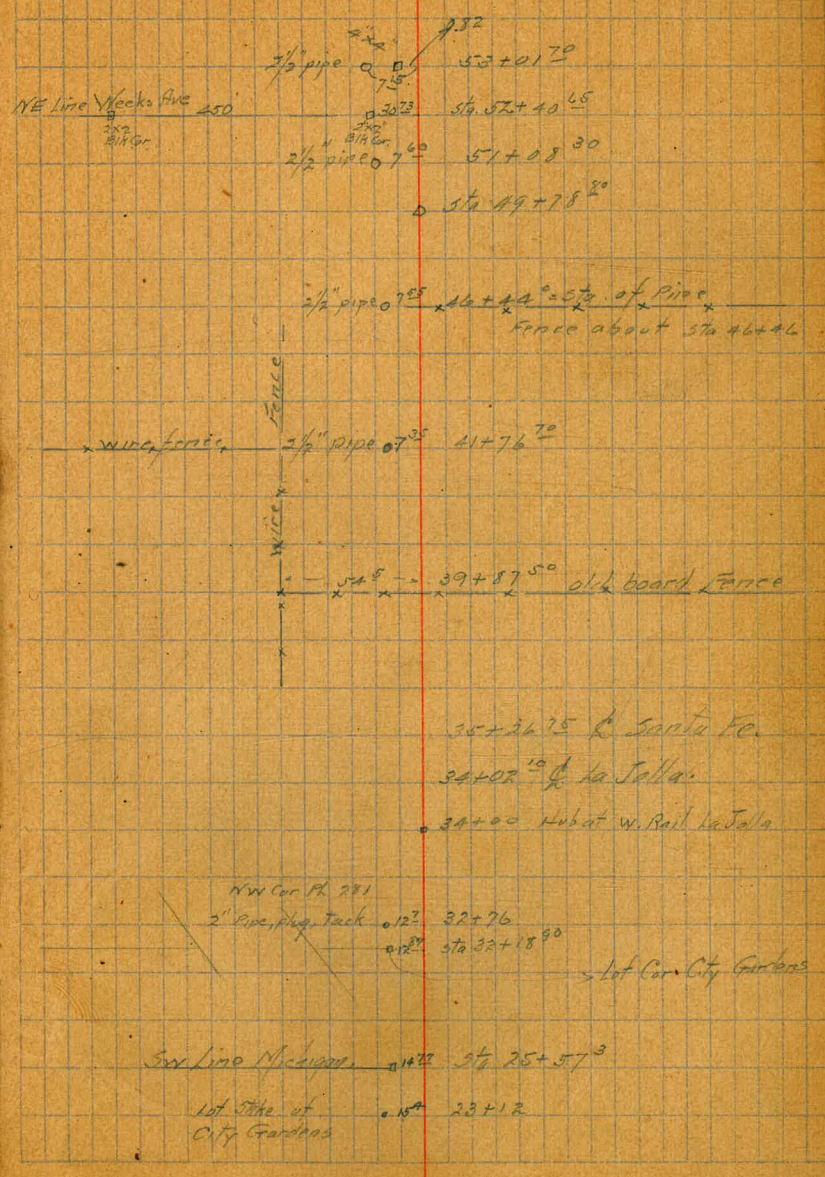 4"x4" .82
2 1/2" pipe 7 15 53+01 70
NE Line Weeks Ave 450 30 73 Sta. 52+40 65
2"x2" 2"x2"
Blk Cor. Blk Cor.
2 1/2" pipe 7 60 51+08 30
Sta 49+78 80
2 1/2" pipe 7 55 46+44 0 = Sta. of Pipe
Fence about Sta 46+46
Wire Fence
wire fence 2 1/2" pipe 7 35 41+76 70
54 5 39+87 50 old board Fence
35+26 75 ℄ Santa Fe.
34+02 10 ℄ La Jolla.
34+00 Hub at W. Rail La Jolla
NW Cor PL 281
2" Pipe, plug, Tack 12 7 32+76
12 87 Sta 32+18 90
Lot Cor. City Gardens
SW Line Michigan. 14 77 Sta 25+57 3
Lot Stake of 15 4 23+12
City Gardens